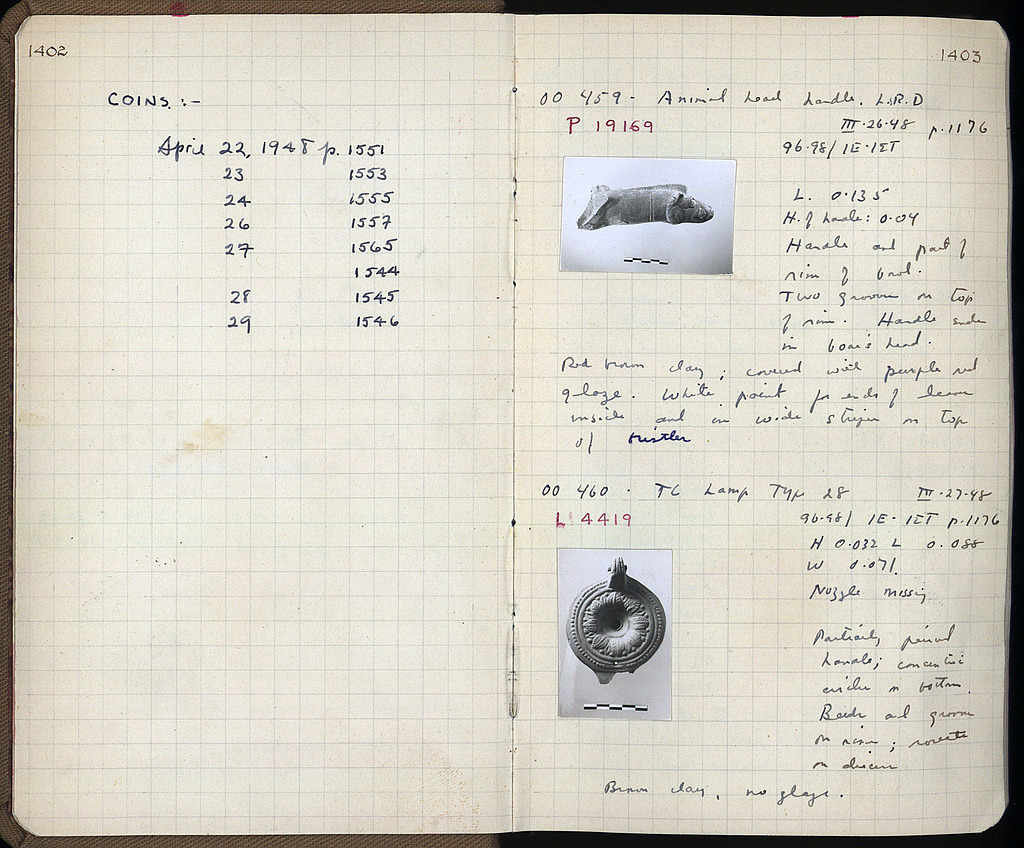 1402
COINS :-
April 22, 1948 p. 1551
23 1553
24 1555
26 1557
27 1565
1544
28 1545
29 1546
1403
OO 459 - Animal head handle. L.R.D
P 19169
III·26·48 p.1176
96-98/ IE-IET
L. 0·135
H. of handle: 0·04
Handle and part of
rim of bowl.
Two grooves on top
of rim. Handle ends
in boar's head.
Red brown clay; covered with purple red
glaze. White paint for ends of
inside and in wide stripes on top
of bristles
OO 460 · TC Lamp Type 28
III·27·48
L 4419
96-98/ IE-IET p.1176
H 0·032 L 0.088
W 0.071.
Nozzle missing
Partially pierced
handle; concentric
circles on bottom.
Beads and groove
on rim; rosette
on discus
Brown clay, no glaze.